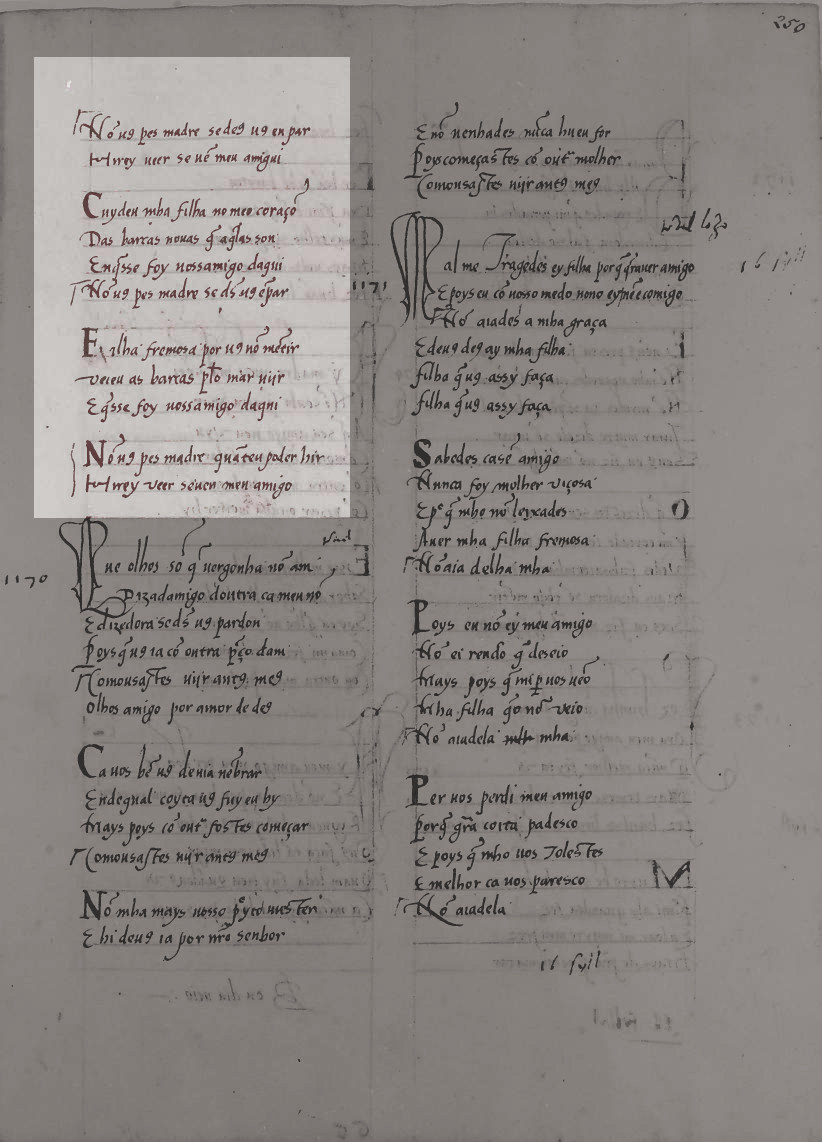 250
Nō uꝯ pes madre sedeꝯ uꝯ en par
Hirey ueer se uē meu amigui
Cuydeu mha filha no meo coraçō
Das barcas nouas q̄ aq̄las son
En q̄sse foy uossamigo daqui
Nō uꝯ pes madre se ds̄ uꝯ ēpar
Filha fremosa por uꝯ nō mētir
veieu as barcas pelo mar uijr
E q̄sse foy uossamigo daqui
Nō uꝯ pes madre quāteu poder hir
Hirey veer seuen meu amigo
1170
Que olhos sō q̄ uergonha nō am
Dizadamigo doutra ca meu nō
E dizedora se ds̄ uꝯ pardon
Poys q̄ uꝯ ia cō outra pço dam
Comousastes uijr antꝯ meꝯ
Olhos amigo por amor de deꝯ
Ca uos bē uꝯ deuia nēbrar
Endequal coyta uꝯ fuy eu hy
Mays poys cō outr fostes começar
Comousastes uijr antꝯ meꝯ
Nō mha mays uosso pyto
E hi deuꝯ ia por nr̄o senhor
E nō uenhades nūca hu eu for
Poys começastes cō outr molher
Comousastes uijr antꝯ meꝯ
1171
Mal me Tragedes ey filha porq̄ q̄r auer amigo
E poys eu cō uosso medo nono ey comigo
Nō aiades a mha graça
E deuꝯ deꝯ ay mha filha
filha q̄ uꝯ assy faça
filha q̄ uꝯ assy faça
Sabedes casē amigo
Nunca foy molher viçosa
E q̄ mho nō leyxades
Auer mha filha fremosa
Nō aia delha mha
Poys eu nō ey meu amigo
Nō ei rendo q̄ deseio
Mays poys q̄ mi p uos ueo
Mha filha q̄o nō veio
Nō aiadela mha
Per uos perdi meu amigo
Porq̄ grā coita padesco
E poys q̄ mho uos Tolestes
E melhor ca uos paresco
Nō aiadela